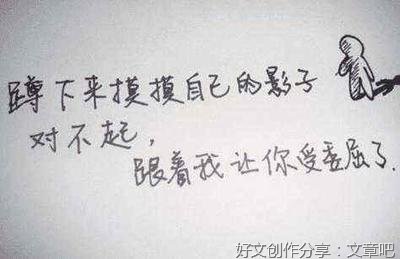 蹲下来摸摸自己的影子
对不起，
跟着我让你受委屈了.
好文创作分享：文章吧